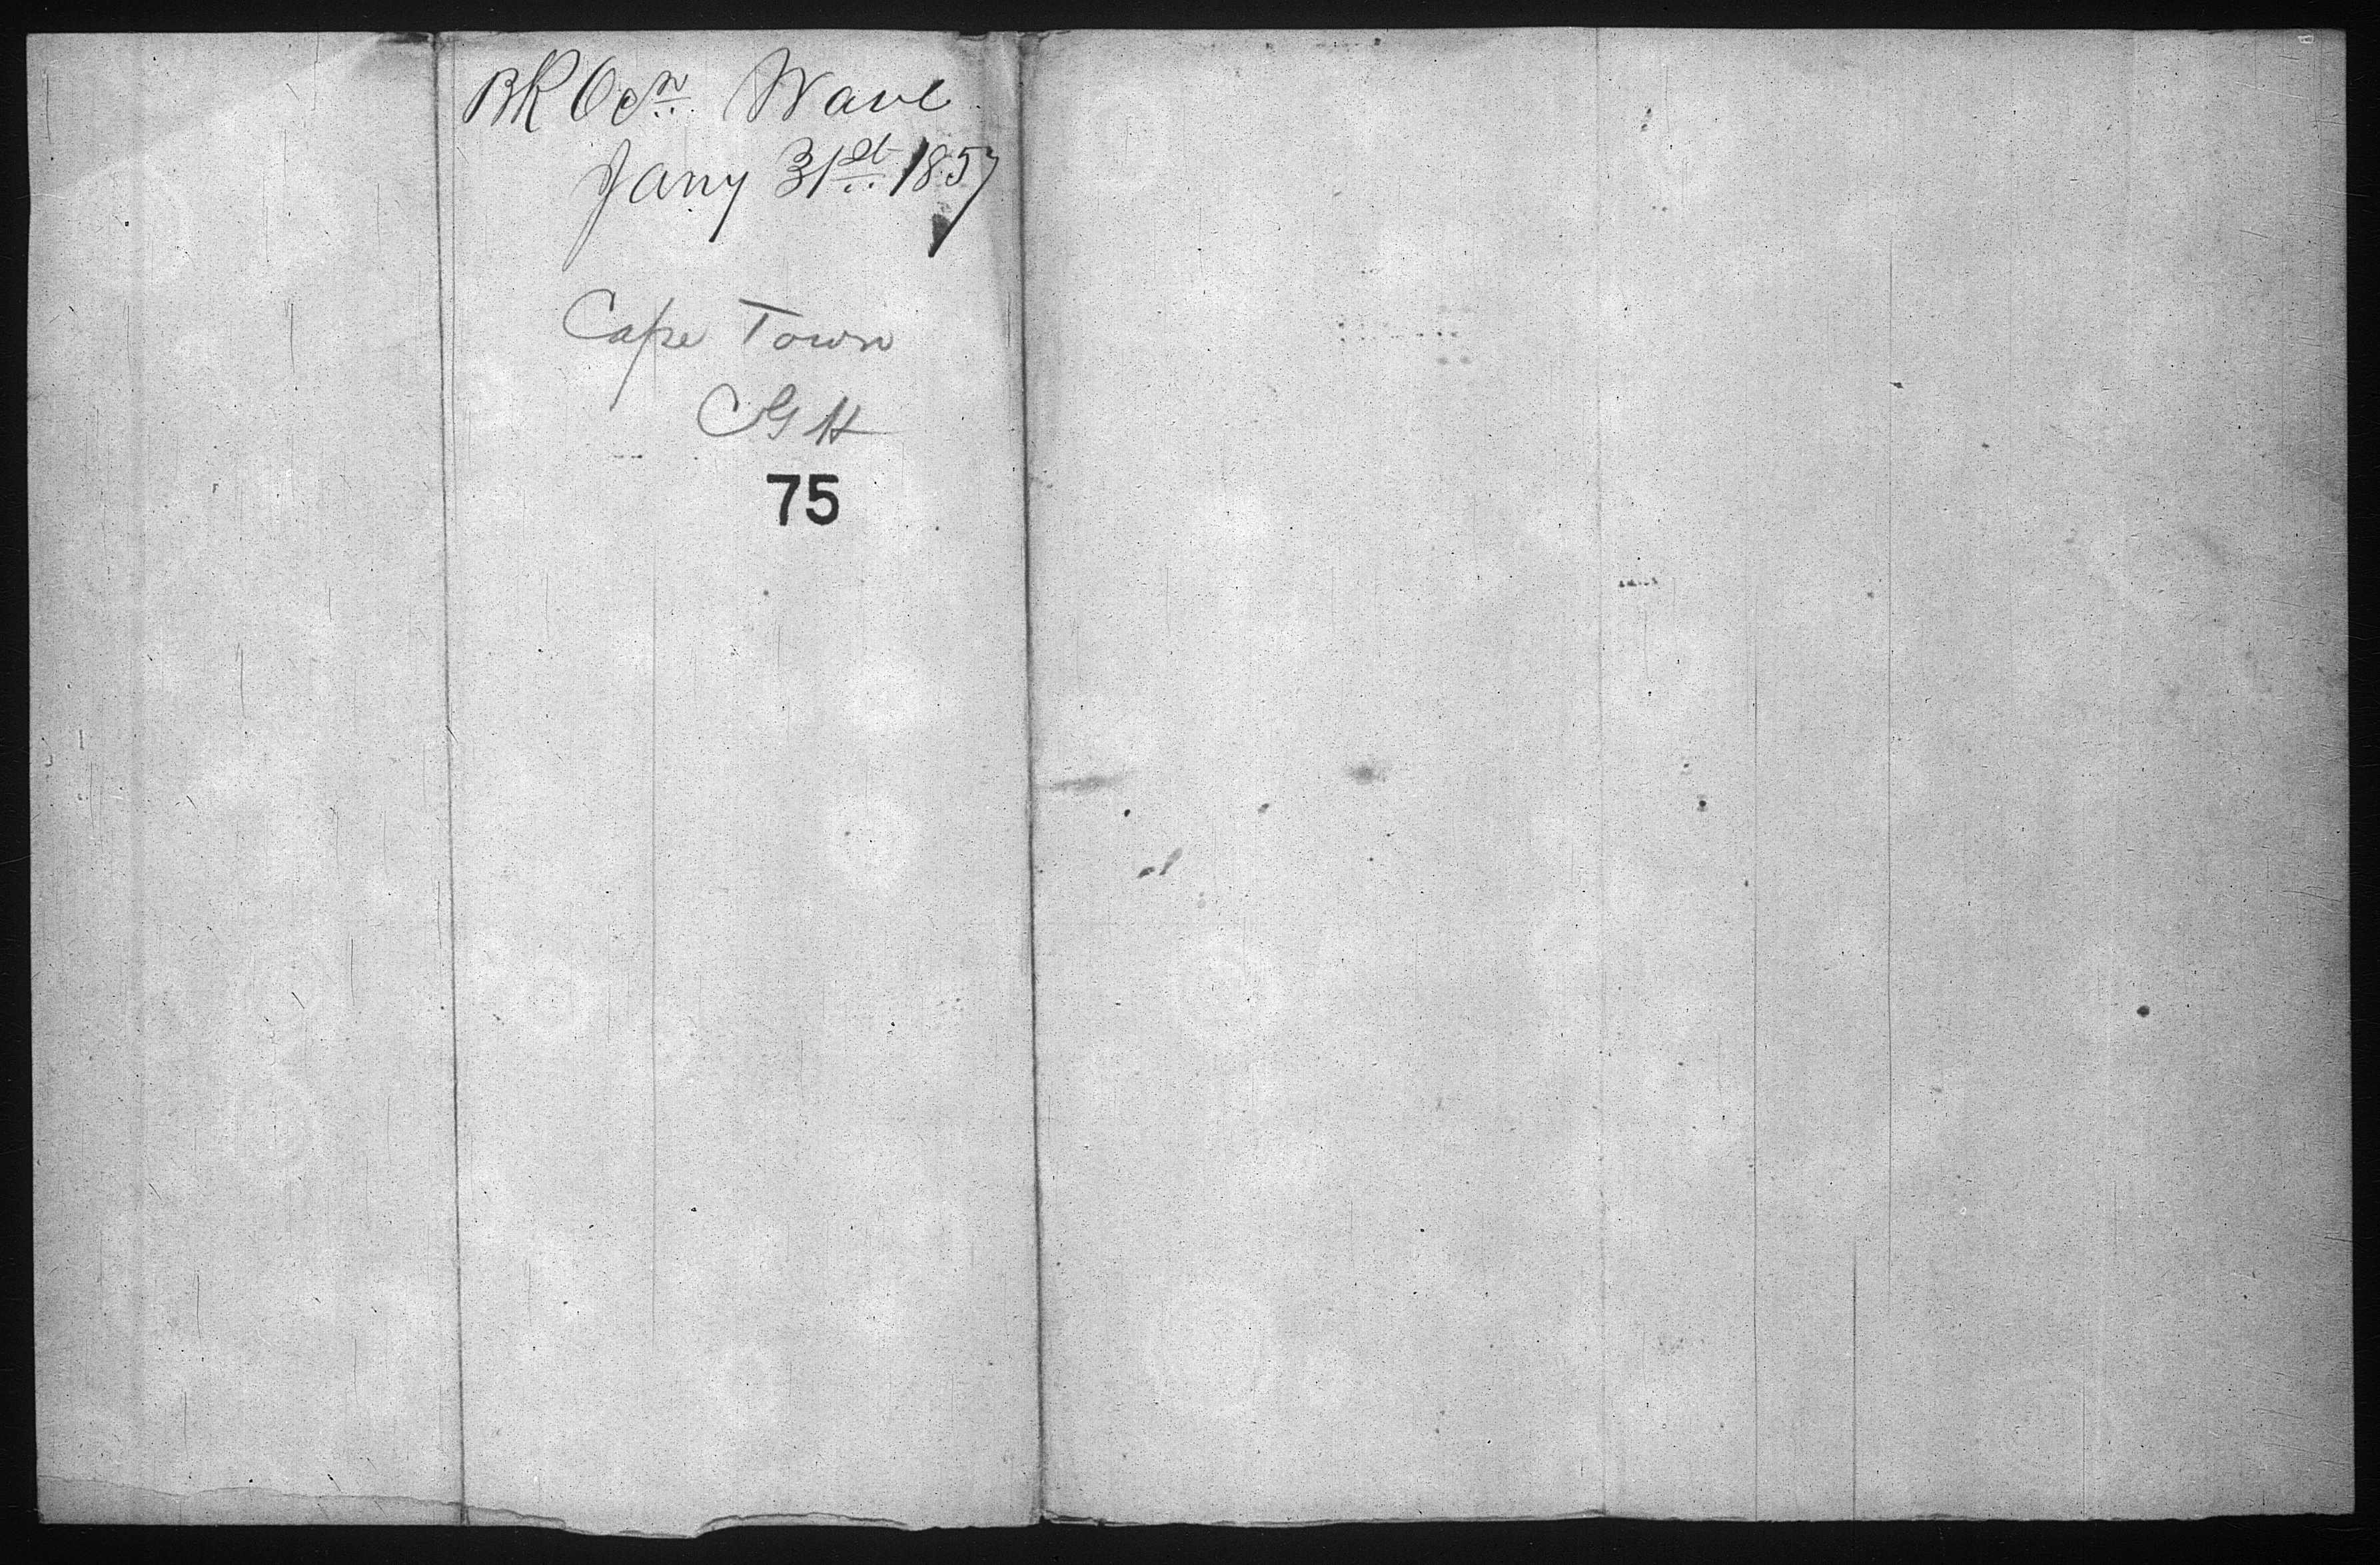 BK Ocn Wave
Jany 31st 1857
Cape Town
CGH
75